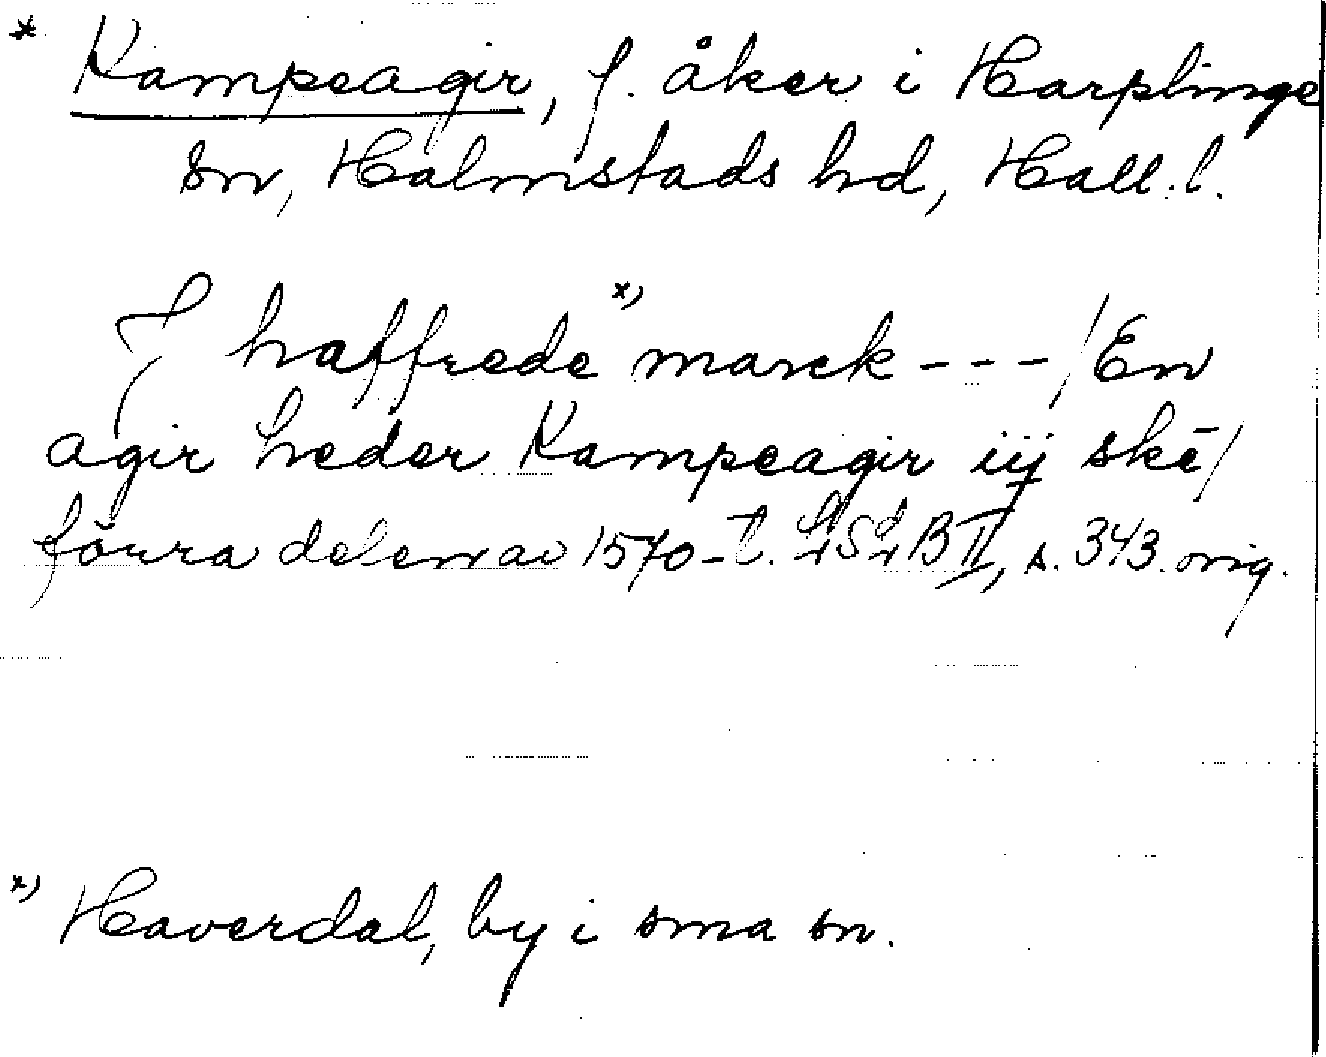 * Kampeagir, f. åker i Harplinge
sn, Halmstads hd, Hall. l.
J haffrede x) marck - - - / En
agir heder Kampeagir iij skē /
förra delen av 1570-t. LSLB II, s. 343. orig.
x) Haverdal, by i sma sn.